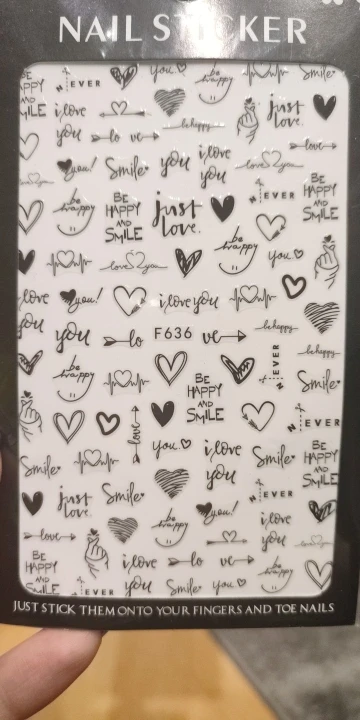 NAIL STICKER
BE HAPPY AND SMILE
EVER
you
be happy
Smile
i love you
just love.
lo ve
be happy
love
you!
Smile
you
i love you
love you
N EVER
BE HAPPY AND SMILE
be happy
BE HAPPY AND SMILE
just love.
be happy
you
love you
love you
you!
i love you
you
lo
F636
ve
be happy
be happy
be happy
N EVER
Smile
BE HAPPY AND SMILE
N EVER
love
you
i love you
Smile
BE HAPPY AND SMILE
Smile
just love.
Smile
N EVER
be happy
you!
i love you
love
BE HAPPY AND SMILE
i love you
lo ve
be happy
EVER
you
Smile
you
JUST STICK THEM ONTO YOUR FINGERS AND TOE NAILS